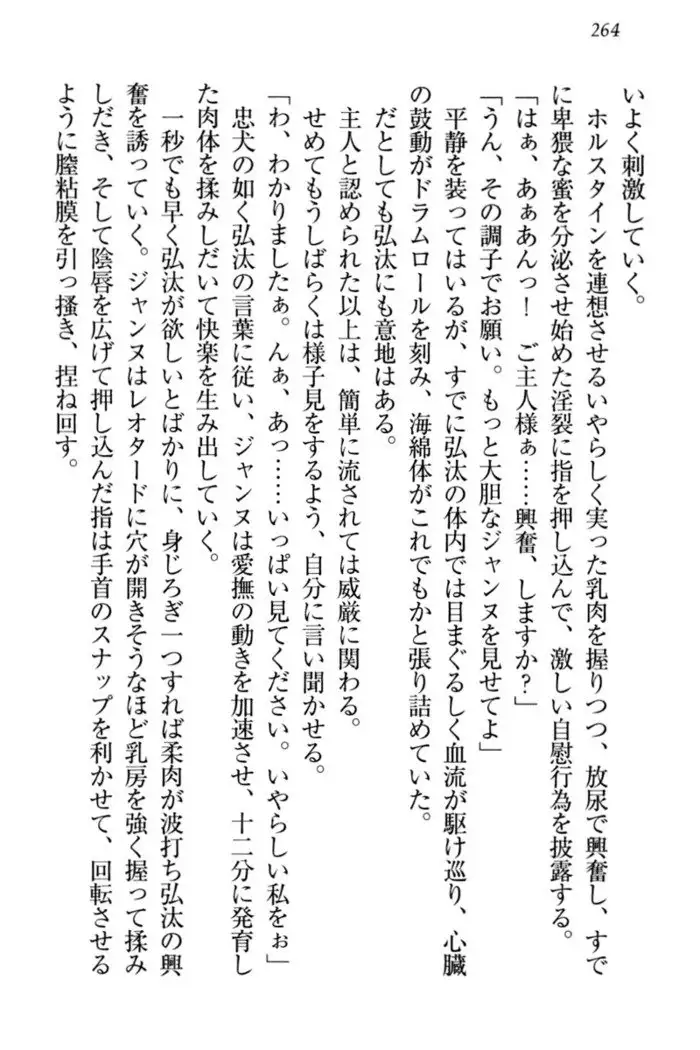 264
いよく刺激していく。
ホルスタインを連想させるいやらしく実った乳肉を握りつつ、放尿で興奮し、すで
に卑猥な蜜を分泌させ始めた淫裂に指を押し込んで、激しい自慰行為を披露する。
「はぁ、あぁあんっ！　ご主人様ぁ……興奮、しますか？」
「うん、その調子でお願い。もっと大胆なジャンヌを見せてよ」
平静を装ってはいるが、すでに弘汰の体内では目まぐるしく血流が駆け巡り、心臓
の鼓動がドラムロールを刻み、海綿体がこれでもかと張り詰めていた。
だとしても弘汰にも意地はある。
主人と認められた以上は、簡単に流されては威厳に関わる。
せめてもうしばらくは様子見をするよう、自分に言い聞かせる。
「わ、わかりましたぁ。んぁ、あっ……いっぱい見てください。いやらしい私をぉ」
忠犬の如く弘汰の言葉に従い、ジャンヌは愛撫の動きを加速させ、十二分に発育し
た肉体を揉みしだいて快楽を生み出していく。
一秒でも早く弘汰が欲しいとばかりに、身じろぎ一つすれば柔肉が波打ち弘汰の興
奮を誘っていく。ジャンヌはレオタードに穴が開きそうなほど乳房を強く握って揉み
しだき、そして陰唇を広げて押し込んだ指は手首のスナップを利かせて、回転させる
ように膣粘膜を引っ掻き、捏ね回す。